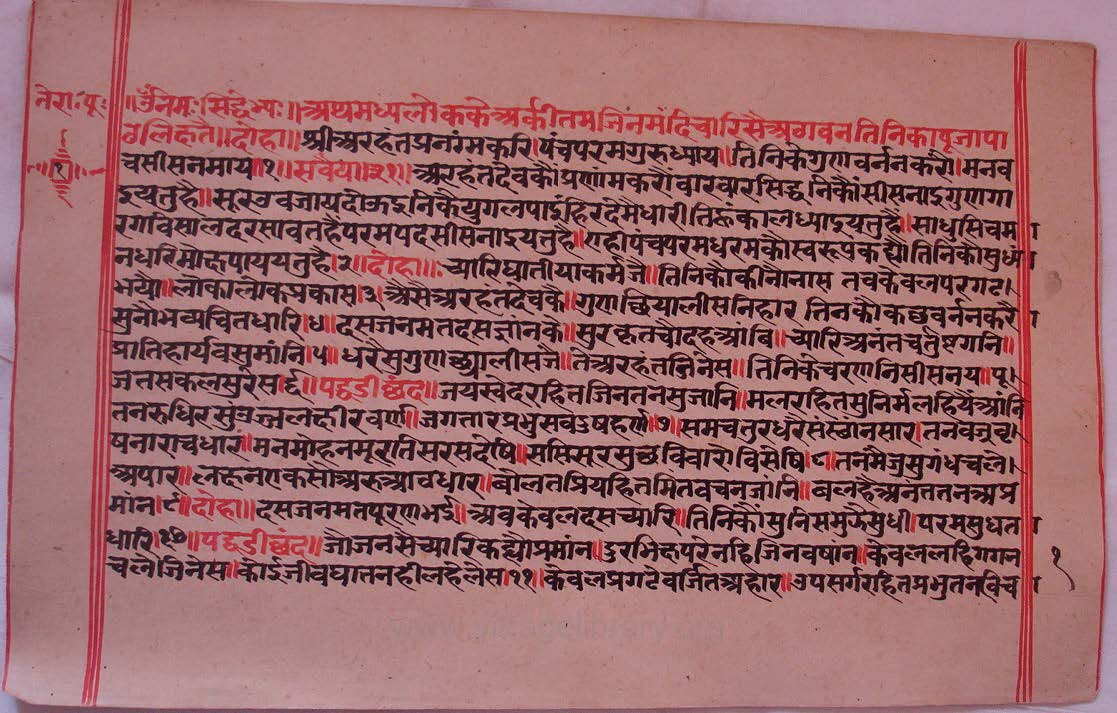 तेरा॰पू॰
॥ॐनमः सिद्धेभ्यः॥अथमध्यलोककेअर्कीतमजिनमंदिचारिसैअठावनतिनिकापूजापा
ठलिष्यतै॥दोहा॥श्रीअरहंतप्रनांमकरि।पंचपरमगुरुध्याय॥तिनिकेगुणवर्ननकरौ।मनव
चसीसनमाय॥१॥सवैया॥३१॥अरहंतदेवकौंप्रणामकरौंवारवारसिद्धनिकौंसीसनाइगुणगा
इयतुहै॥सूरउवजायदोऊइनिकैयुगलपाइहिरदैमैंधारीतिऊंकालध्याइयतुहै॥साधुसिवम
रगविसालदरसावतहैंपरमपदसीसनाइयतुहै॥एहीपंचपरमधरमकौस्वरूपकह्यौतिनिकौसुध्यां
नधरिमोक्षपाययतुहै।२॥दोहा॥च्यारिघातीयाकर्मजे॥तिनिकोकीनोनास तवकेवलपरगट।
भयौ॥लोकालोकप्रकास।३।अैसैअरहंतदेवकै॥गुणछियालीसनिहार तिनकौकछुवर्ननकरौ
सुनोभव्यचितधारि।४।दसजनमतदसज्ञांनके॥सुरकृतचौदहआंबि॥च्यारिअनंतचतुष्टगनि॥
प्रातिहार्यवसुमांनि।५।धरैसुगुणछ्यालीसजे॥तेअरहंतजिनेस॥तिनिकेचरणनिसीसनय॥पू।
जतसकलसुरेस।६॥पद्धडीछंद॥जयस्वेदरहितजिनतनसुजानि॥मलरहितसुनिर्मलहियैआंनि
तनरुधिरसुउज्जलक्षीरवर्ण॥जगतारप्रभुसवदुषहर्ण॥७॥समचतुरधरैसंस्थांनसार।तनवज्रवृ।
षनाराचधार॥मनमोहनमूरतिसरसदेषि॥ससिसूरसुछविवारोविसेषि।८।तनमैजुसुगंधचले।
अपार॥लक्षनएकसौअरुआवधार।बोलतप्रियहितमितवचनजांनि॥बलहैअनंततनअप्र
मांन।९।दोहा॥दसजनमतपूरणभई॥अबकेवलदसच्यारि॥तिनिकौंसुनिसमुझैसुधी।परमसुधता
धारि।१०॥पद्धडीछंद॥जोजनसैच्यारिकह्यौप्रमांन॥दुरभिक्षपरेनहिजिनवषांन॥केवललहिगगन
चलैजिनेस॥कोईजीवघातनहीलहैलेस।११।केवलप्रगटेवर्जितअहार॥उपसर्गरहितप्रभुतनविच
१